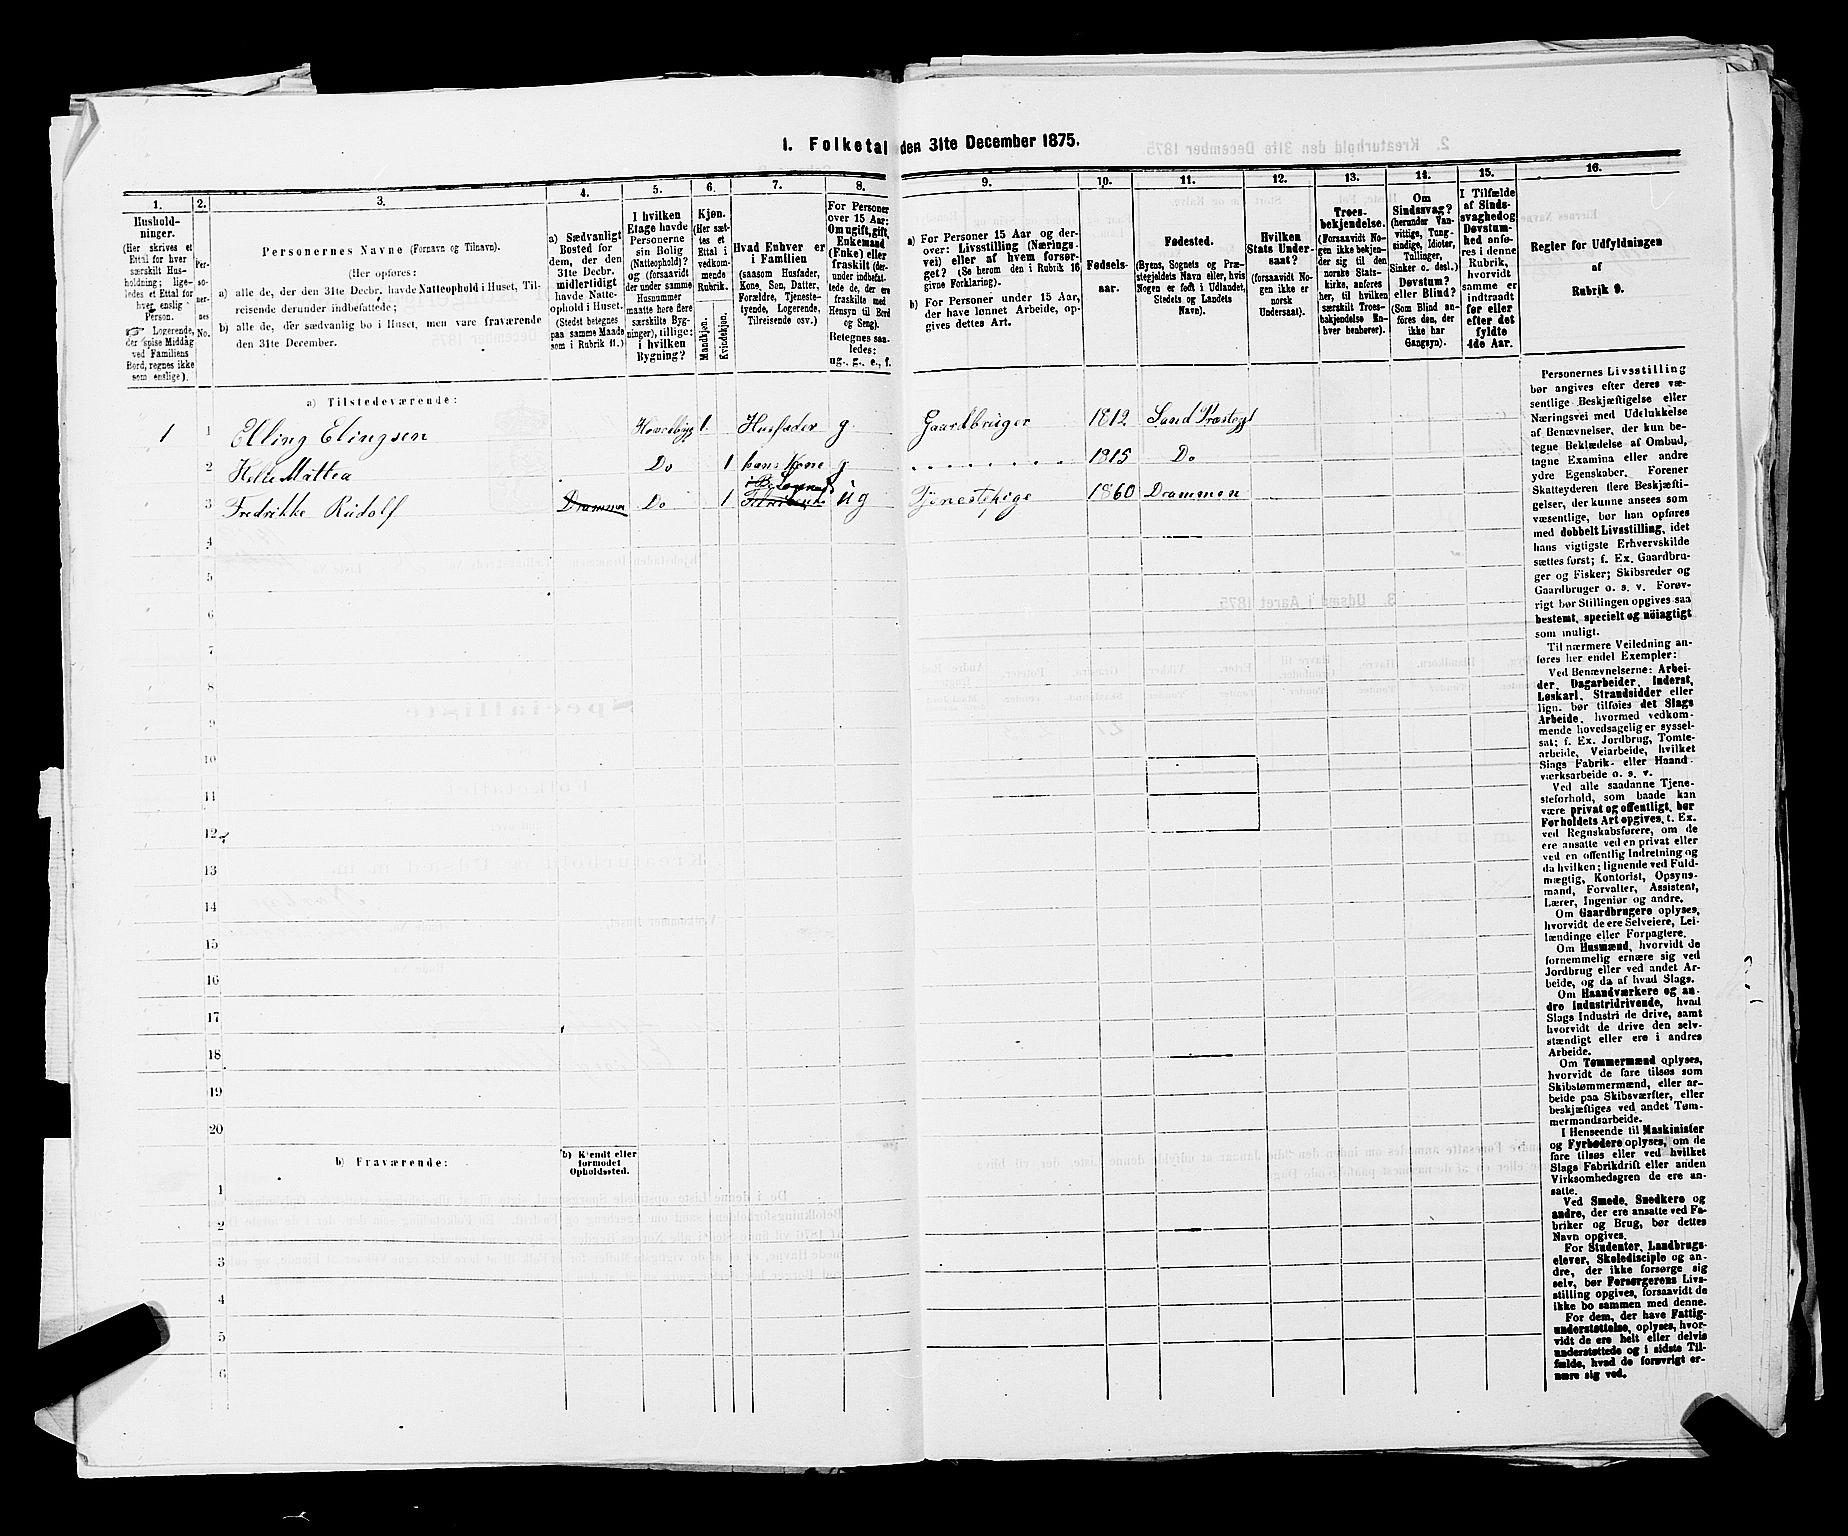 1. Folketal den 31te December 1875.
1.
Hushold-
ninger.
(Her skrives et
Ettal for hver
særskilt Hus-
holdning; lige-
ledes et Ettal for
hver enslig
Person.
Logerende,
der spise Middag
ved Familiens
Bord, regnes ikke
som enslige).
2.
Per-
so-
ner-
nes
No.
3.
Personernes Navne (Fornavn og Tilnavn).
(Her opføres:
a) alle de, der den 31te Decbr. havde Natteophold i Huset, Til-
reisende derunder indbefattede;
b) alle de, der sædvanlig bo i Huset, men vare fraværende
den 31te December.
4.
a) Sædvanligt
Bosted for
dem, der den
31te Decbr.
midlertidigt
havde Natte-
ophold i Huset.
(Stedet betegnes
paa samme Maade
som i Rubrik 11.)
5.
I hvilken
Etage havde
Personerne
sin Bolig
(Natteophold)?
og (forsaavidt
der under samme
Husnummer
maatte høre flere
særskilte Byg-
ninger), tillige:
i hvilken
Bygning?
6.
Kjøn.
(Her sæt-
tes et
Ettal i
vedkom-
mende
Rubrik.
Mandkjøn.
Kvindekjøn.
7.
Hvad Enhver er
i Familien
(saasom Husfader,
Kone, Søn, Datter,
Forældre, Tjeneste-
tyende, Logerende,
Tilreisende osv.)
8.
For Personer
over 15 Aar:
Om ugift, gift,
Enkemand
(Enke) eller
fraskilt (der-
under indbefat-
tede de, der ere
fraskilte med
Hensyn til Bord
og Seng).
Betegnes saa-
ledes:
ug., g., e., f.
9.
a) For Personer 15 Aar og der-
over: Livsstilling (Nærings-
vei) eller af hvem forsør-
get? (Se herom den i Rubrik 16
givne Forklaring).
b) For Personer under 15 Aar,
der have lønnet Arbeide, op-
gives dettes Art.
10.
Fødsels-
aar.
11.
Fødested.
(Byens, Sognets og Præ-
stegjeldets Navn eller, hvis
Nogen er født i Udlandet,
Stedets og Landets
Navn).
12.
Hvilken
Stats Under-
saat?
(forsaavidt No-
gen ikke er
norsk
Undersaat).
13.
Troes-
bekjendelse.
(Forsaavidt No-
gen ikke bekjen-
der sig til den
norske Stats-
kirke, anføres
her, til hvilken
særskilt Troes-
bekjendelse En-
hver henhører).
14.
Om
Sindssvag?
(herunder Van-
vittige, Tung-
sindige, Idioter,
Tullinger,
Sinker o. desl.)
Døvstum?
eller Blind?
(Som Blind an-
føres den, der
ikke har
Gangsyn).
15.
I Tilfælde
af Sinds-
svaghed og
Døvstum-
hed anfø-
res i denne
Rubrik,
hvorvidt
samme er
indtraadt
før eller
efter det
fyldte
4de Aar.
16.
Regler for Udfyldningen
af
Rubrik 9.
a) Tilstedeværende:
1 1 Elling Elingsen Hovedbyg 1 Husfader g Gaardbruger 1812 Sand Præstegj
2 Helle Mattea Do 1 hans Kone g 1815 Do
3 Fredrikke Rudolf Drammen Do 1 ug Tjenestepige 1860 Drammen
4
5
6
7
8
9
10
11
12
13
14
15
16
17
18
19
20
b) Fraværende:
b) Kjendt eller
formodet
Opholdssted.
1
2
3
4
5
6
Personernes Livsstilling
bør angives efter deres væ-
sentlige Beskjæftigelse eller
Næringsvei med Udelukkelse
af Benævnelser, der kun be-
tegne Beklædelse af Ombud,
tagne Examina eller andre
ydre Egenskaber. Forener
Skatteyderen flere Beskjæfti-
gelser, der kunne ansees som
væsentlige, bør han opføres
med dobbelt Livsstilling, idet
hans vigtigste Erhvervskilde
sættes først; f. Ex. Gaardbru-
ger og Fisker; Skibsreder og
Gaardbruger o. s. v. Forøv-
rigt bør Stillingen opgives saa
bestemt, specielt og nöiagtigt
som muligt.
Til nærmere Veiledning an-
føres her endel Exempler:
Ved Benævnelserne: Arbei-
der, Dagarbeider, Inderst,
Løskarl, Strandsidder eller
lign. bør tilføies det Slags
Arbeide, hvormed vedkom-
mende hovedsagelig er syssel-
sat; f. Ex. Jordbrug, Tomte-
arbeide, Veiarbeide, hvilket
Slags Fabrik- eller Haand-
værksarbeide o. s. v.
Ved alle saadanne Tjene-
steforhold, som baade kan
være privat og offentligt, bør
Forholdets Art opgives, t. Ex.
ved Regnskabsførere, om de
ere ansatte ved en privat eller
ved en offentlig Indretning og
da hvilken; lignende ved Fuld-
mægtig, Kontorist, Opsyns-
mand, Forvalter, Assistent,
Lærer, Ingeniør og andre.
Om Gaardbrugere oplyses,
hvorvidt de ere Selveiere, Lei-
lændinge eller Forpagtere.
Om Husmænd, hvorvidt de
fornemmelig ernære sig ved
Jordbrug eller ved andet Ar-
beide, og da af hvad Slags.
Om Haandværkere og an-
dre Industridrivende, hvad
Slags Industri de drive, samt
hvorvidt de drive den selv-
stændigt eller ere i andres
Arbeide.
Om Tømmermænd oplyses,
hvorvidt de fare tilsøs som
Skibstømmermænd, eller ar-
beide paa Skibsværfter, eller
beskjæftiges ved andet Tøm-
mermandsarbeide.
I Henseende til Maskinister
og Fyrbødere oplyses, om de
fare tilsøs eller ved hvilket
Slags Fabrikdrift eller anden
Virksomhedsgren de ere an-
satte.
Ved Smede, Snedkere og
andre, der ere ansatte ved Fa-
briker og Brug, bør dettes
Navn opgives.
For Studenter, Landbrugs-
elever, Skoledisciple og an-
dre, der ikke forsørge sig
selv, bør Forsørgerens Livs-
stilling opgives, forsaavidt de
ikke bo sammen med denne.
For dem, der have Fattig-
understøttelse, oplyses, hvor-
vidt de ere helt eller delvis
understøttede og i sidste Til-
fælde, hvad de forøvrigt er-
nære sig ved.